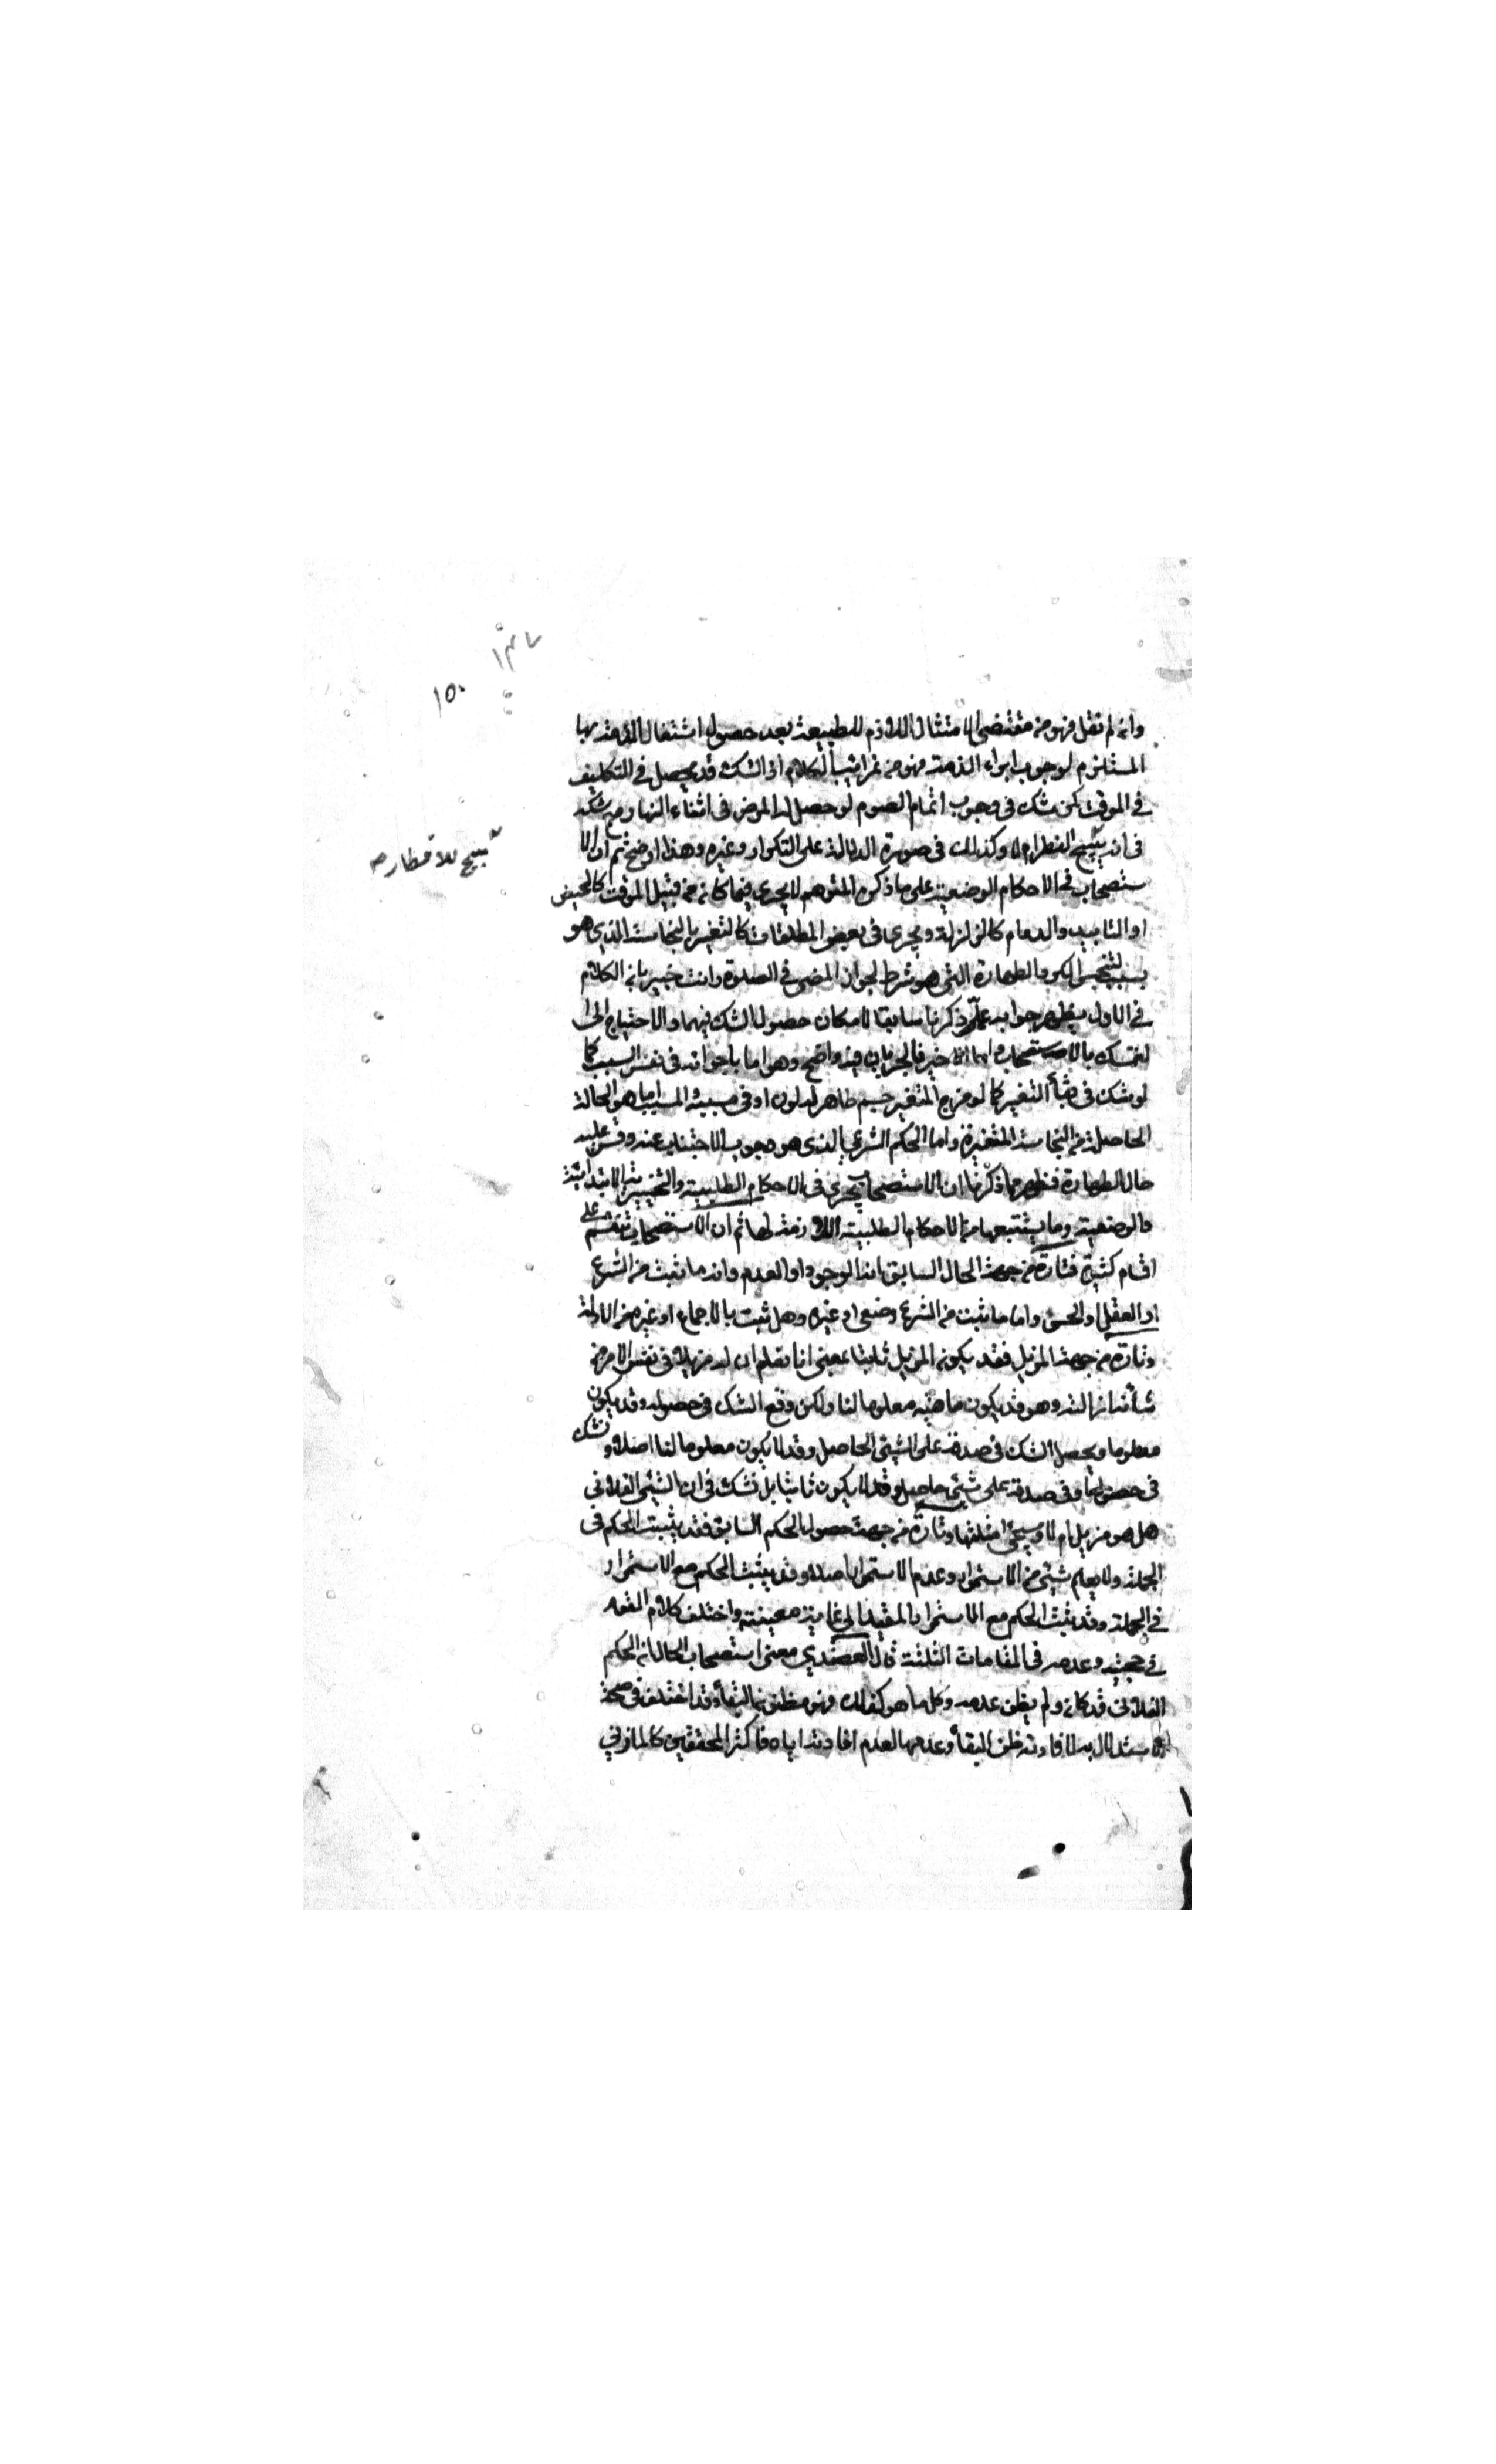 ١٣٧
١٥٠
وان لم نقل فهو من مقتضى الامتثال اللازم للطبيعة بعد حصول اشتغال الذمة بها
المستلزم لوجوب ابراء الذمة فهو من غرائب الكلام اذ الشك قد يحصل في التكليف
في الموقت كمن شك في وجوب اتمام الصوم لو حصل له المرض في اثناء النهار مع شكه
في انه يبيح الفطر ام لا وكذلك في صورة الدلالة على التكرار وغيره وهذا اوضح ثم ان الا
يبيح للافطار ص
ستصحاب في الاحكام الوضعية على ما ذكره المتوهم لا يجري فيما كان من قبيل الموقت كالحيض
او التابيد والدوام كالزلزلة ويجرى في بعض المطلقات كالتغير بالنجاسة الذي هو
سبب لتنجس الكر والطهارة التي هو شرط لجواز المضي في الصلوة وانت خبير بان الكلام
في الاول يظهر جوابه مما ذكرنا سابقا لامكان حصول الشك فيهما والاحتياج الى
التمسك بالاستصحاب واما الاخير فالجريان فيه واضح وهو اما باجرائه في نفس السبب كما
لو شك في بقاء التغير كما لو مزج المتغير جسم طاهر له لون او في مسببه والمسبب اما هو الحالة
الحاصلة من النجاسة المتغيرة واما الحكم الشرعي الذي هو وجوب الاجتناب عنه وقس عليه
حال الطهارة فظهر مما ذكرنا ان الاستصحاب يجري في الاحكام الطلبية والتخييرية الابتدائية
والوضعية وما يستتبعها من الاحكام الطلبية اللازمة لها ثم ان الاستصحاب ينقسم على
اقسام كثيرة فتارة من جهة الحال السابق انه الوجود او العدم وانه مما ثبت من الشرع
او العقل او الحس واما ما ثبت من الشرع وضعي او غيره وهل ثبت بالاجماع او غيره من الادلة
وتارة من جهة المزيل فقد يكون المزيل ثابتا بمعنى انا نعلم ان له مزيلا في نفس الامر من
شأنه ازالته وهو قد يكون ماهيته معلوما لنا ولكن وقع الشك في حصوله وقد يكون
معلوما ويحصل الشك في صدقه على الشيئ الحاصل وقد لا يكون معلوما لنا اصلا ونشك
في حصوله او في صدقه على شيئ حاصل وقد لا يكون ثابتا بل نشك في ان الشيئ الفلاني
هل هو مزيل ام لا وسيجئ امثلتها وتارة من جهة حصول الحكم السابق فقد يثبت الحكم في
الجملة ولا يعلم شيئ من الاستمرار وعدم الاستمرار اصلا وقد يثبت الحكم مع الاستمرار
في الجملة وقد يثبت الحكم مع الاستمرار المقيد الى غاية معينة واختلف كلام القوم
في حجيته وعدمه في المقامات الثلثة قال العضدي معنى استصحاب الحال ان الحكم
الفلاني قد كان ولم يظن عدمه وكل ما هو كذلك فهو مظنون البقاء وقد اختلف في صحة
الاستدلال به لافادته ظن البقاء وعدمها لعدم افادته اياه فاكثر المحققين كالمازني